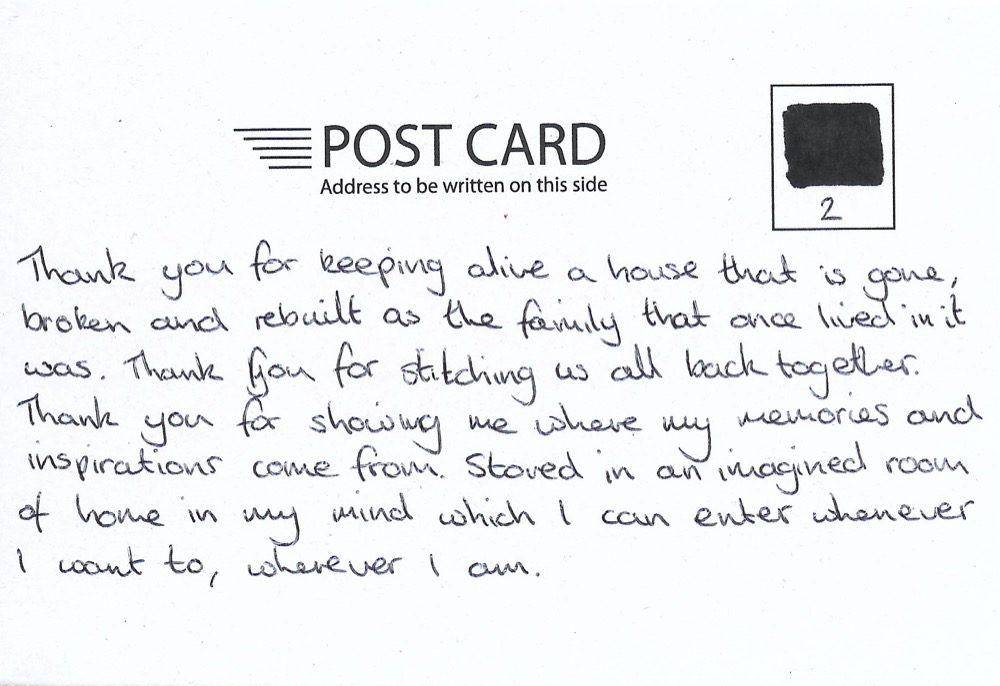 POST CARD
Address to be written on this side
2
Thank you for keeping alive a house that is gone,
broken and rebuilt as the family that once lived in it
was. Thank you for stitching us all back together.
Thank you for showing me where my memories and
inspirations come from. Stored in an imagined room
of home in my mind which I can enter whenever
I want to, wherever I am.